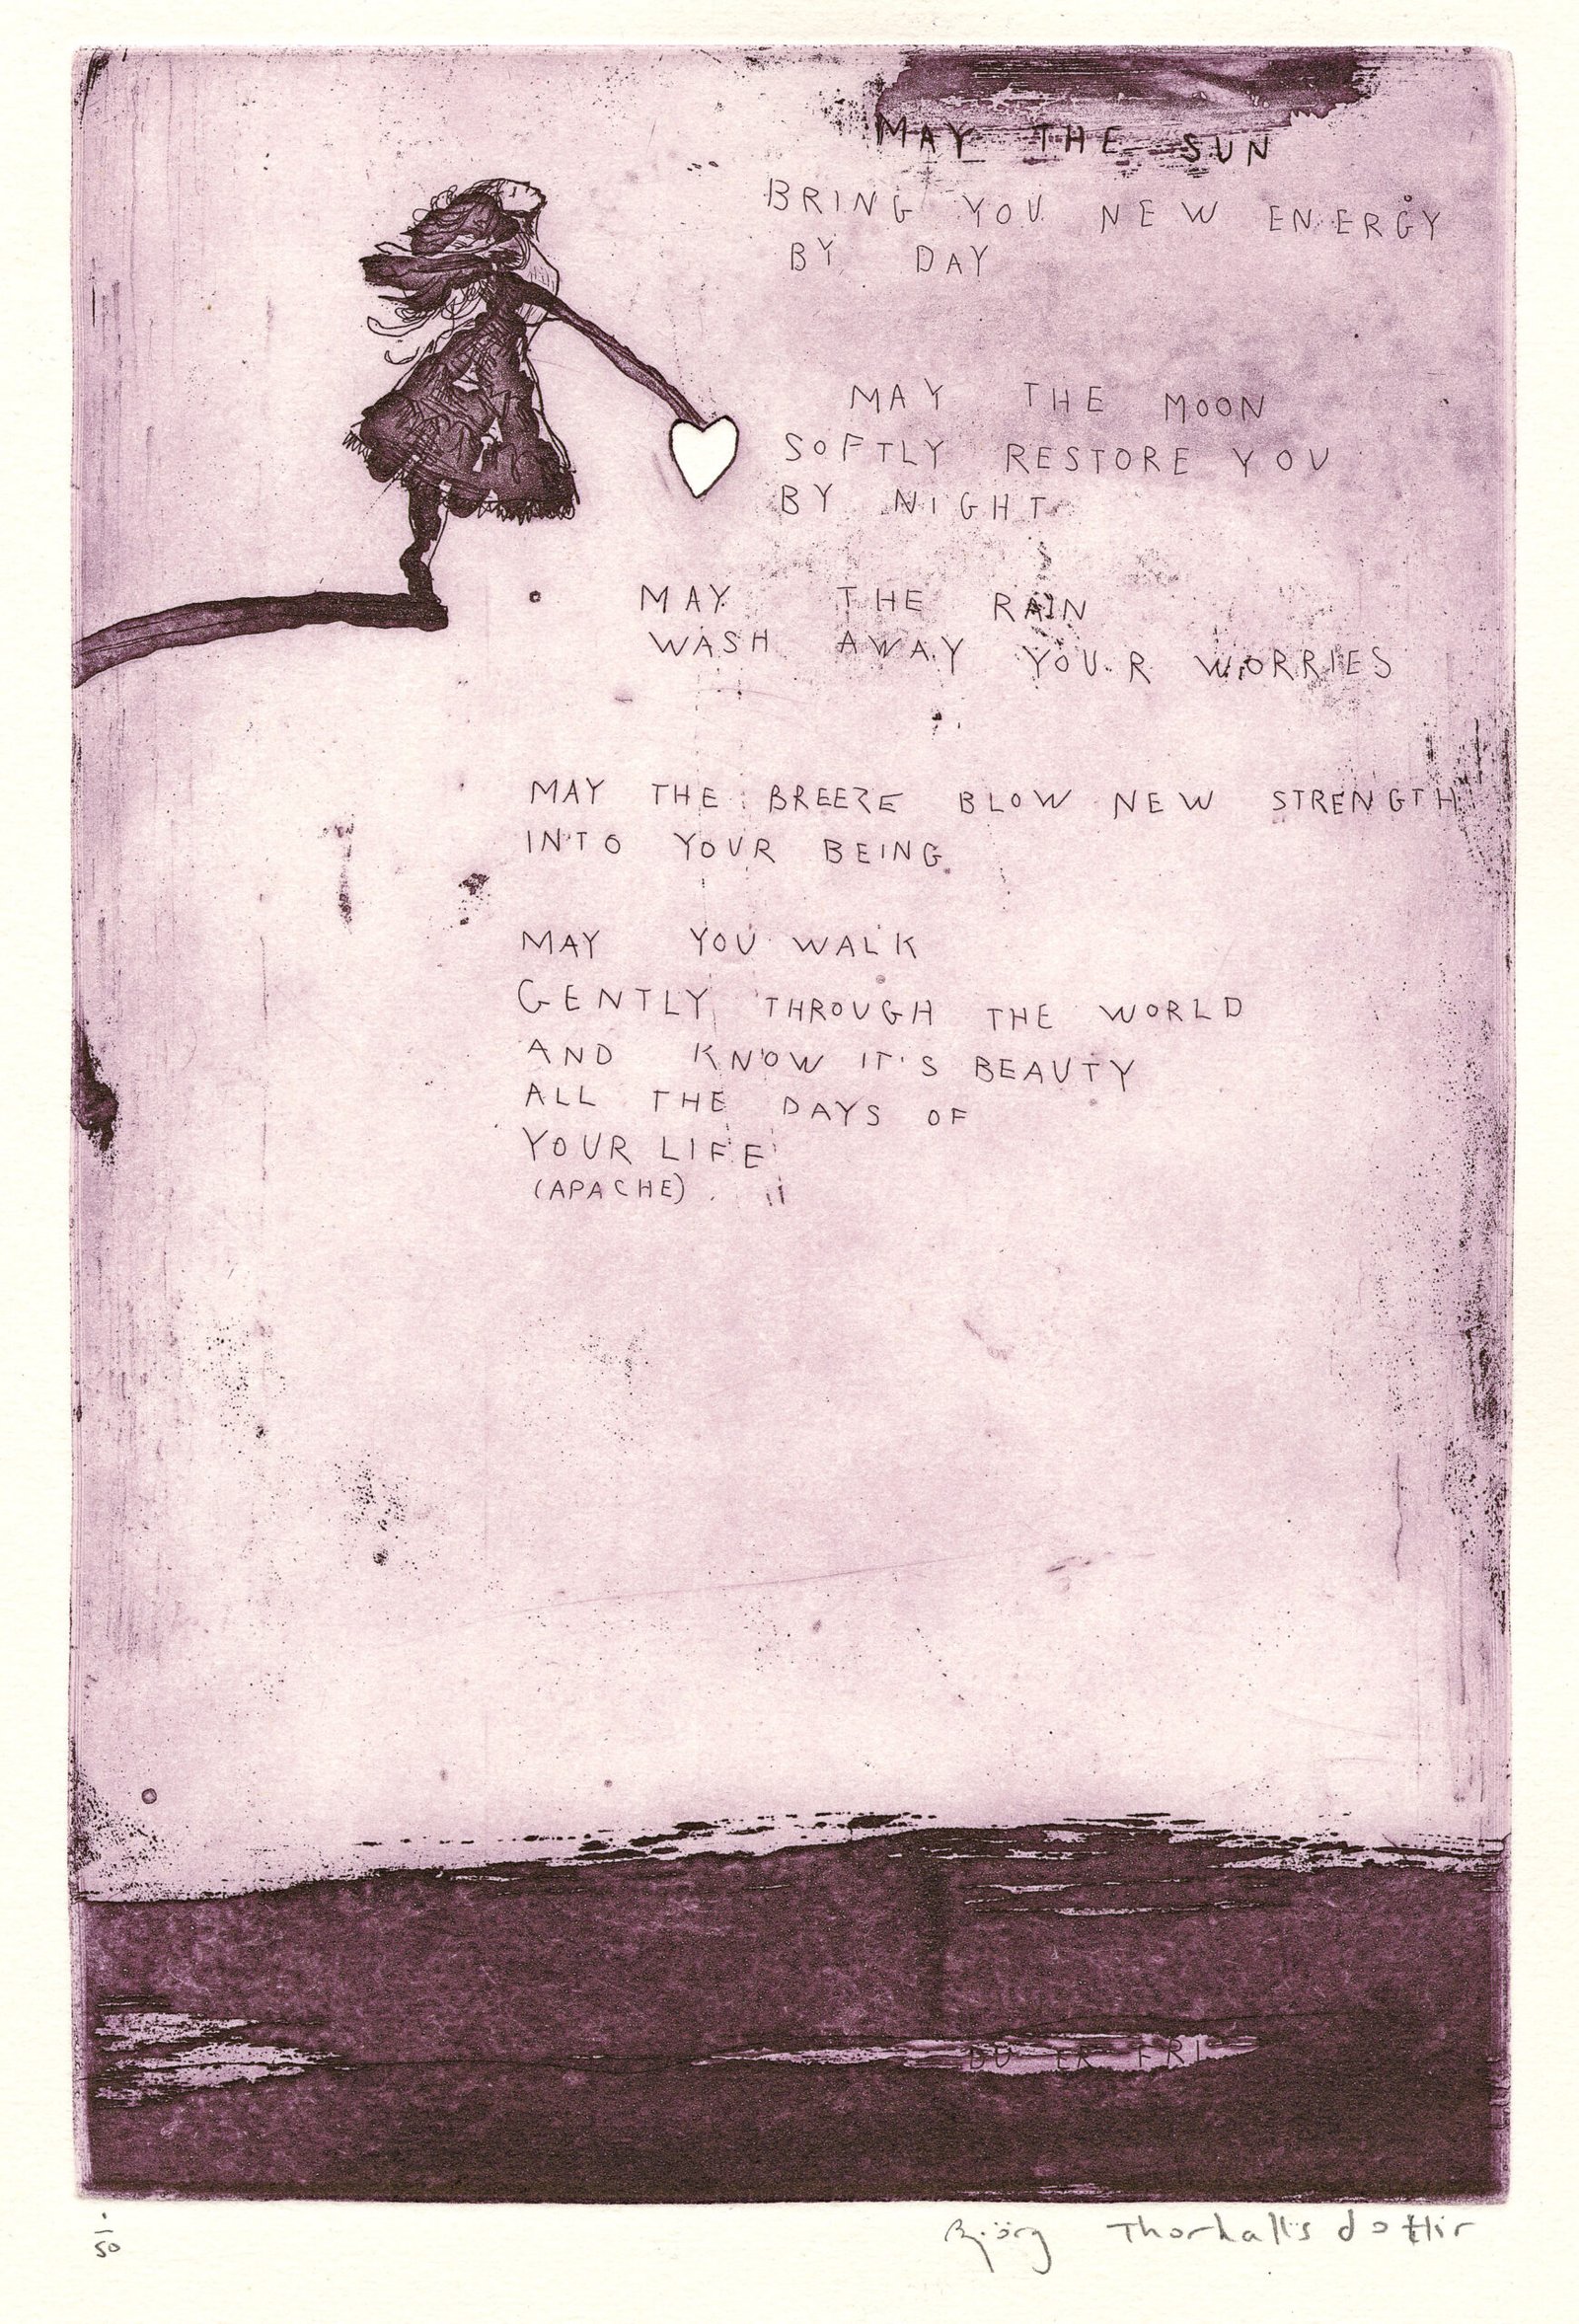 MAY THE SUN
BRING YOU NEW ENERGY
BY DAY
MAY THE MOON
SOFTLY RESTORE YOU
BY NIGHT
MAY THE RAIN
WASH AWAY YOUR WORRIES
MAY THE BREEZE BLOW NEW STRENGTH
INTO YOUR BEING
MAY YOU WALK
GENTLY THROUGH THE WORLD
AND KNOW IT'S BEAUTY
ALL THE DAYS OF
YOUR LIFE
(APACHE)
DU ER FRI
1/50
Björg Thorhallsdottir